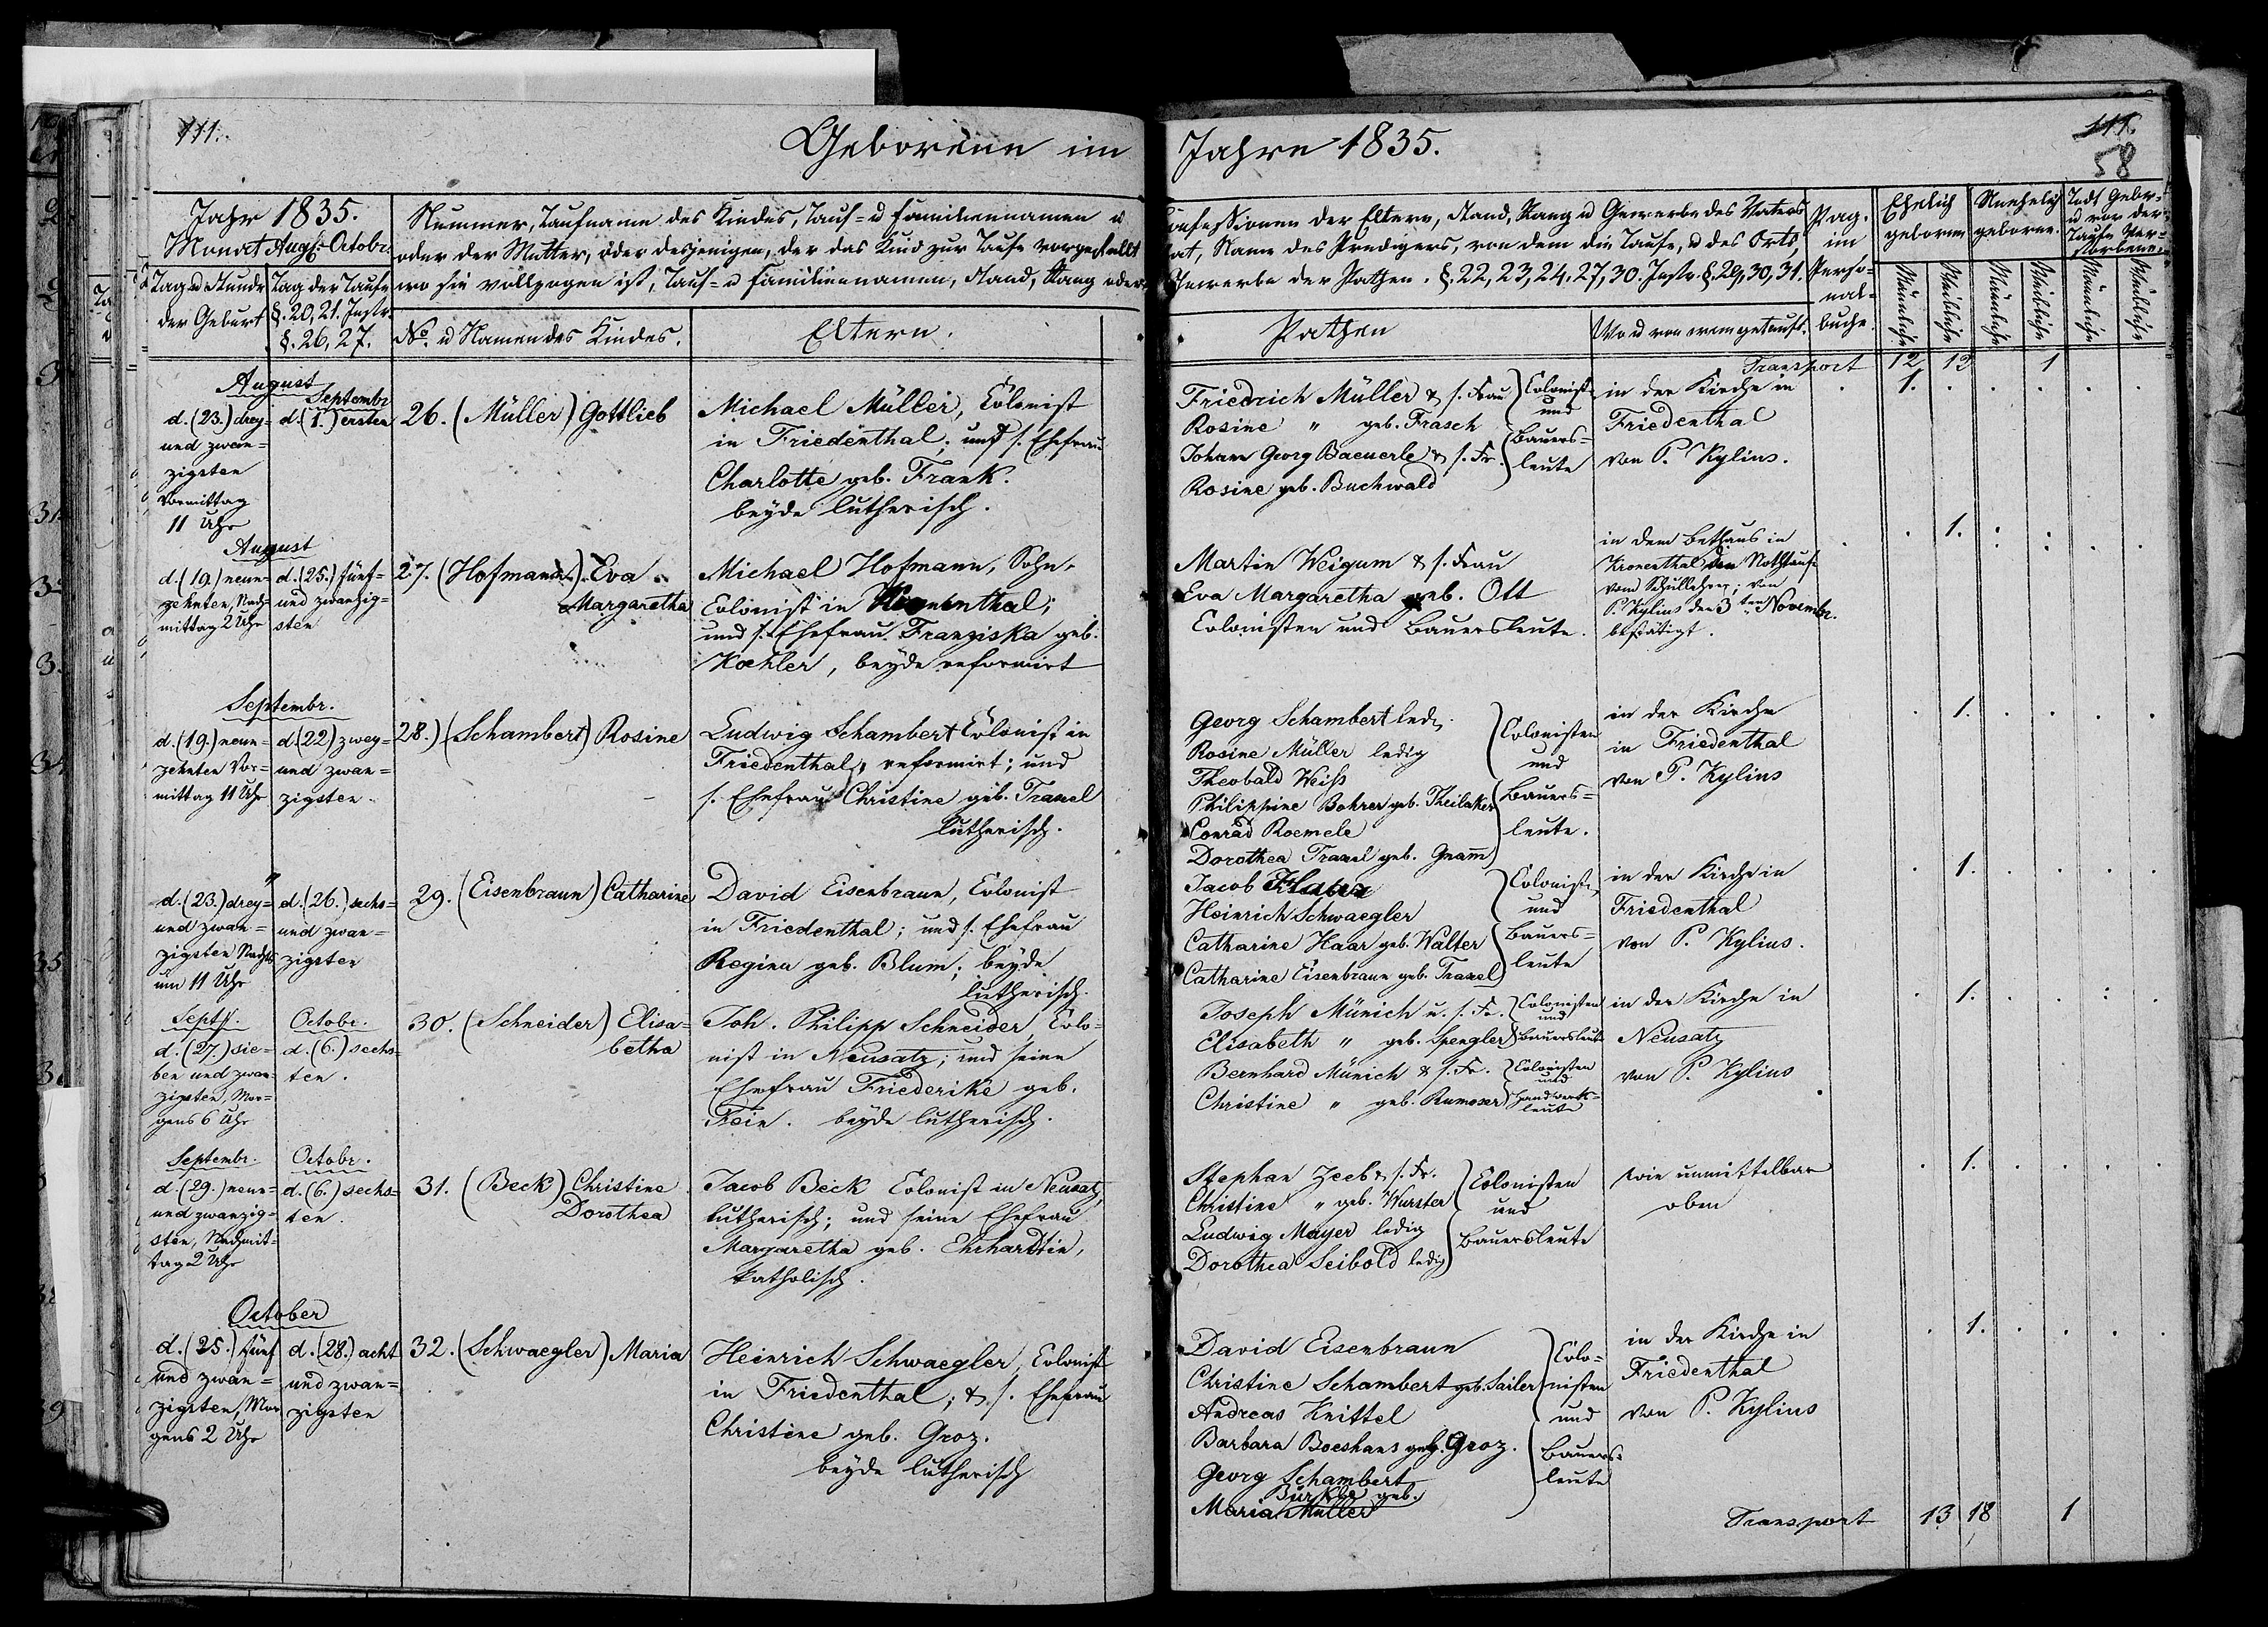 111.
Geborene im Jahre 1835.
111.
58
Jahr 1835.
Monat Augst. Octobr.
Tag u Stunde der Geburt
Tag der Taufe §. 20, 21. Instr. §. 26, 27.
Nummer, Taufname des Kindes, Tauf= u Familiennamen u
Confessionen der Eltern, Stand, Rang u Gewerbe des Vaters
oder der Mutter, oder desjenigen, der das Kind zur Taufe vorgestellt
hat, Name des Predigers, von dem die Taufe, u des Orts,
wo sie vollzogen ist, Tauf= u Familiennamen, Stand, Rang oder
Gewerbe der Pathen. §. 22, 23, 24, 27, 30. Instr. §. 29, 30, 31.
No. u Namen des Kindes.
Eltern.
Pathen
Wo u von wem getauft.
Pag. im Perso=nal=buche.
Ehelich geboren
Unehelich geboren.
Todt Gebor= u vor der Taufe Ver=storbene.
Männliche
Weibliche
Männliche
Weibliche
Männliche
Weibliche
Transport 12 12 1
August
Septembr
d. (23.) drey=
und zwan=
zigsten
Vormittag
11 Uhr
d. (1.) ersten
26. (Müller) Gottlieb
Michael Müller, Colonist
in Friedenthal; und s. Ehefrau
Charlotte geb. Frank.
beyde lutherisch.
Friedrich Müller & s. Frau
Rosine " geb. Frasch
Johann Georg Baeuerle & s. Fr.
Rosine geb. Buchwald
Colonist
und
Bauers=
leute
in der Kirche in
Friedenthal
von P. Kylius.
1.
August
d. (19.) neun=
zehnten, Nach=
mittag 2 Uhr
d. (25.) fünf=
und zwanzig=
sten
27. (Hofmann) Eva
Margaretha
Michael Hofmann, Sohn,
Colonist in Kronenthal;
und s. Ehefrau Franziska geb.
Koehler, beyde reformirt
Martin Weigum & s. Frau
Eva Margaretha geb. Ott
Colonisten und Bauersleute.
in dem Bethaus in
Kronenthal die Nothtaufe
vom Schullehrer; von
P. Kylius den 3ten Novembr.
bestätigt.
1.
Septembr.
d. (19.) neun=
zehnten Vor=
mittag 11 Uhr
d. (22) zwey=
und zwan=
zigsten
28.) (Schambert) Rosine
Ludwig Schambert Colonist in
Friedenthal, reformirt; und
s. Ehefrau Christine geb. Traxel
lutherisch.
Georg Schambert led.
Rosine Müller ledig
Theobald Weiss
Philippine Bohrer geb. Theilaker
Conrad Roemele
Dorothea Traxel geb. Gnam
Colonisten
und
Bauers=
leute.
in der Kirche
in Friedenthal
von P. Kylius
1.
"
d. (23.) drey=
und zwan=
zigsten Nachts
um 11 Uhr
d. (26.) sechs=
und zwan=
zigsten
29. (Eisenbraun) Catharine
David Eisenbraun, Colonist
in Friedenthal; und s. Ehefrau
Regina geb. Blum; beyde
lutherisch.
Jacob
Heinrich Schwaegler
Catharine Haar geb. Walter
Catharine Eisenbraun geb. Traxel
Colonist.
und
Bauers=
leute
in der Kirche in
Friedenthal
von P. Kylius.
1.
Septbr.
d. (27.) sie=
ben und zwan=
zigsten, Mor=
gens 6 Uhr
Octobr.
d. (6.) sechs=
ten.
30. (Schneider) Elisa=
betha
Joh. Philipp Schneider Colo=
nist in Neusatz; und seine
Ehefrau Friederike geb.
Fein. beyde lutherisch.
Joseph Münich u. s. Fr.
Elisabeth " geb. Spengler
Bernhard Münich & s. Fr.
Christine " geb. Rumoser
Colonisten
und
Bauersleute
Colonisten
und
Handwerks=
leute
in der Kirche in
Neusatz
von P. Kylius
1.
Septembr.
d. (29.) neun=
und zwanzig=
sten, Nachmit=
tag 2 Uhr
Octobr.
d. (6.) sechs=
ten.
31. (Beck) Christine
Dorothea
Jacob Beck Colonist in Neusatz,
lutherisch; und seine Ehefrau
Margaretha geb. Ehrhardtin,
katholisch.
Stephan Zeeb & s. Fr.
Christine " geb. Wurster
Ludwig Mayer ledig
Dorothea Seibold ledig
Colonisten
und
Bauersleute
wie unmittelbar
oben
1.
October
d. (25.) fünf
und zwan=
zigsten, Mor
gens 2 Uhr
d. (28.) acht
und zwan=
zigsten
32. (Schwaegler) Maria
Heinrich Schwaegler, Colonist
in Friedenthal; & s. Ehefrau
Christine geb. Groz.
beyde lutherisch
David Eisenbraun
Christine Schambert geb. Sailer
Andreas Knittel
Barbara Boeshans geb. Groz.
Georg Schambert
Bürkle geb.
Maria Müller
Colo=
nisten
und
Bauers=
leute
in der Kirche in
Friedenthal
von P. Kylius
1.
Transport 13 18 1